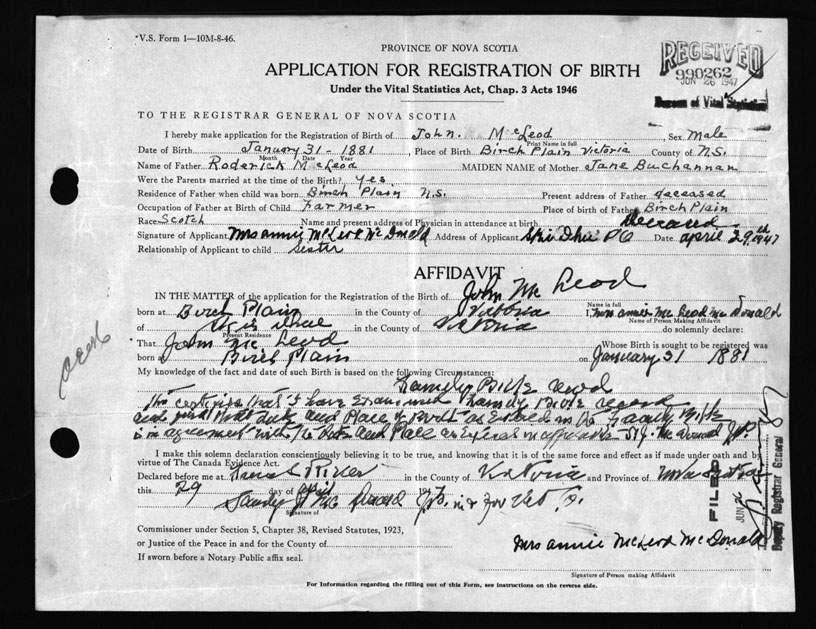 *V.S. Form 1—10M-8-46.
PROVINCE OF NOVA SCOTIA
RECEIVED
990262
JUN 26 1947
Bureau of Vital Statistics
APPLICATION FOR REGISTRATION OF BIRTH
Under the Vital Statistics Act, Chap. 3 Acts 1946
TO THE REGISTRAR GENERAL OF NOVA SCOTIA
I hereby make application for the Registration of Birth of John. McLeod Sex Male
Print Name in full
Date of Birth January 31 - 1881, Place of Birth Birch Plain Victoria County of N.S.
Month Date Year
Name of Father Roderick McLeod MAIDEN NAME of Mother Jane Buchannan
Were the Parents married at the time of the Birth? Yes.
Residence of Father when child was born Birch Plain N.S. Present address of Father deceased
Occupation of Father at Birth of Child Farmer Place of birth of Father Birch Plain
Race Scotch Name and present address of Physician in attendance at birth
Signature of Applicant Mrs Annie McLeod McDonald Address of Applicant Date April 29th 1947
Relationship of Applicant to child Sister
AFFIDAVIT
IN THE MATTER of the application for the Registration of the Birth of John McLeod
Name in full
born at Birch Plain in the County of Victoria I, Mrs Annie McLeod McDonald
Name of Person Making Affidavit
of in the County of Victoria do solemnly declare:
Present Residence
That John McLeod Whose Birth is sought to be registered was
born at Birch Plain on January 31 1881
My knowledge of the fact and date of such Birth is based on the following Circumstances:
Family Bible record
This certifies that I have Examined Family Bible record
and find that date and Place of birth as Entered in the Family Bible
is in agreement with the Date and Place as
I make this solemn declaration conscientiously believing it to be true, and knowing that it is of the same force and effect as if made under oath and by
virtue of The Canada Evidence Act.
Declared before me at in the County of Victoria and Province of Nova Scotia
this 29 day of April
Signature of
Commissioner under Section 5, Chapter 38, Revised Statutes, 1923,
or Justice of the Peace in and for the County of
If sworn before a Notary Public affix seal.
Mrs Annie McLeod McDonald
Signature of Person making Affidavit
For Information regarding the filling out of this Form, see instructions on the reverse side.
FILED
JUN
Deputy Registrar General